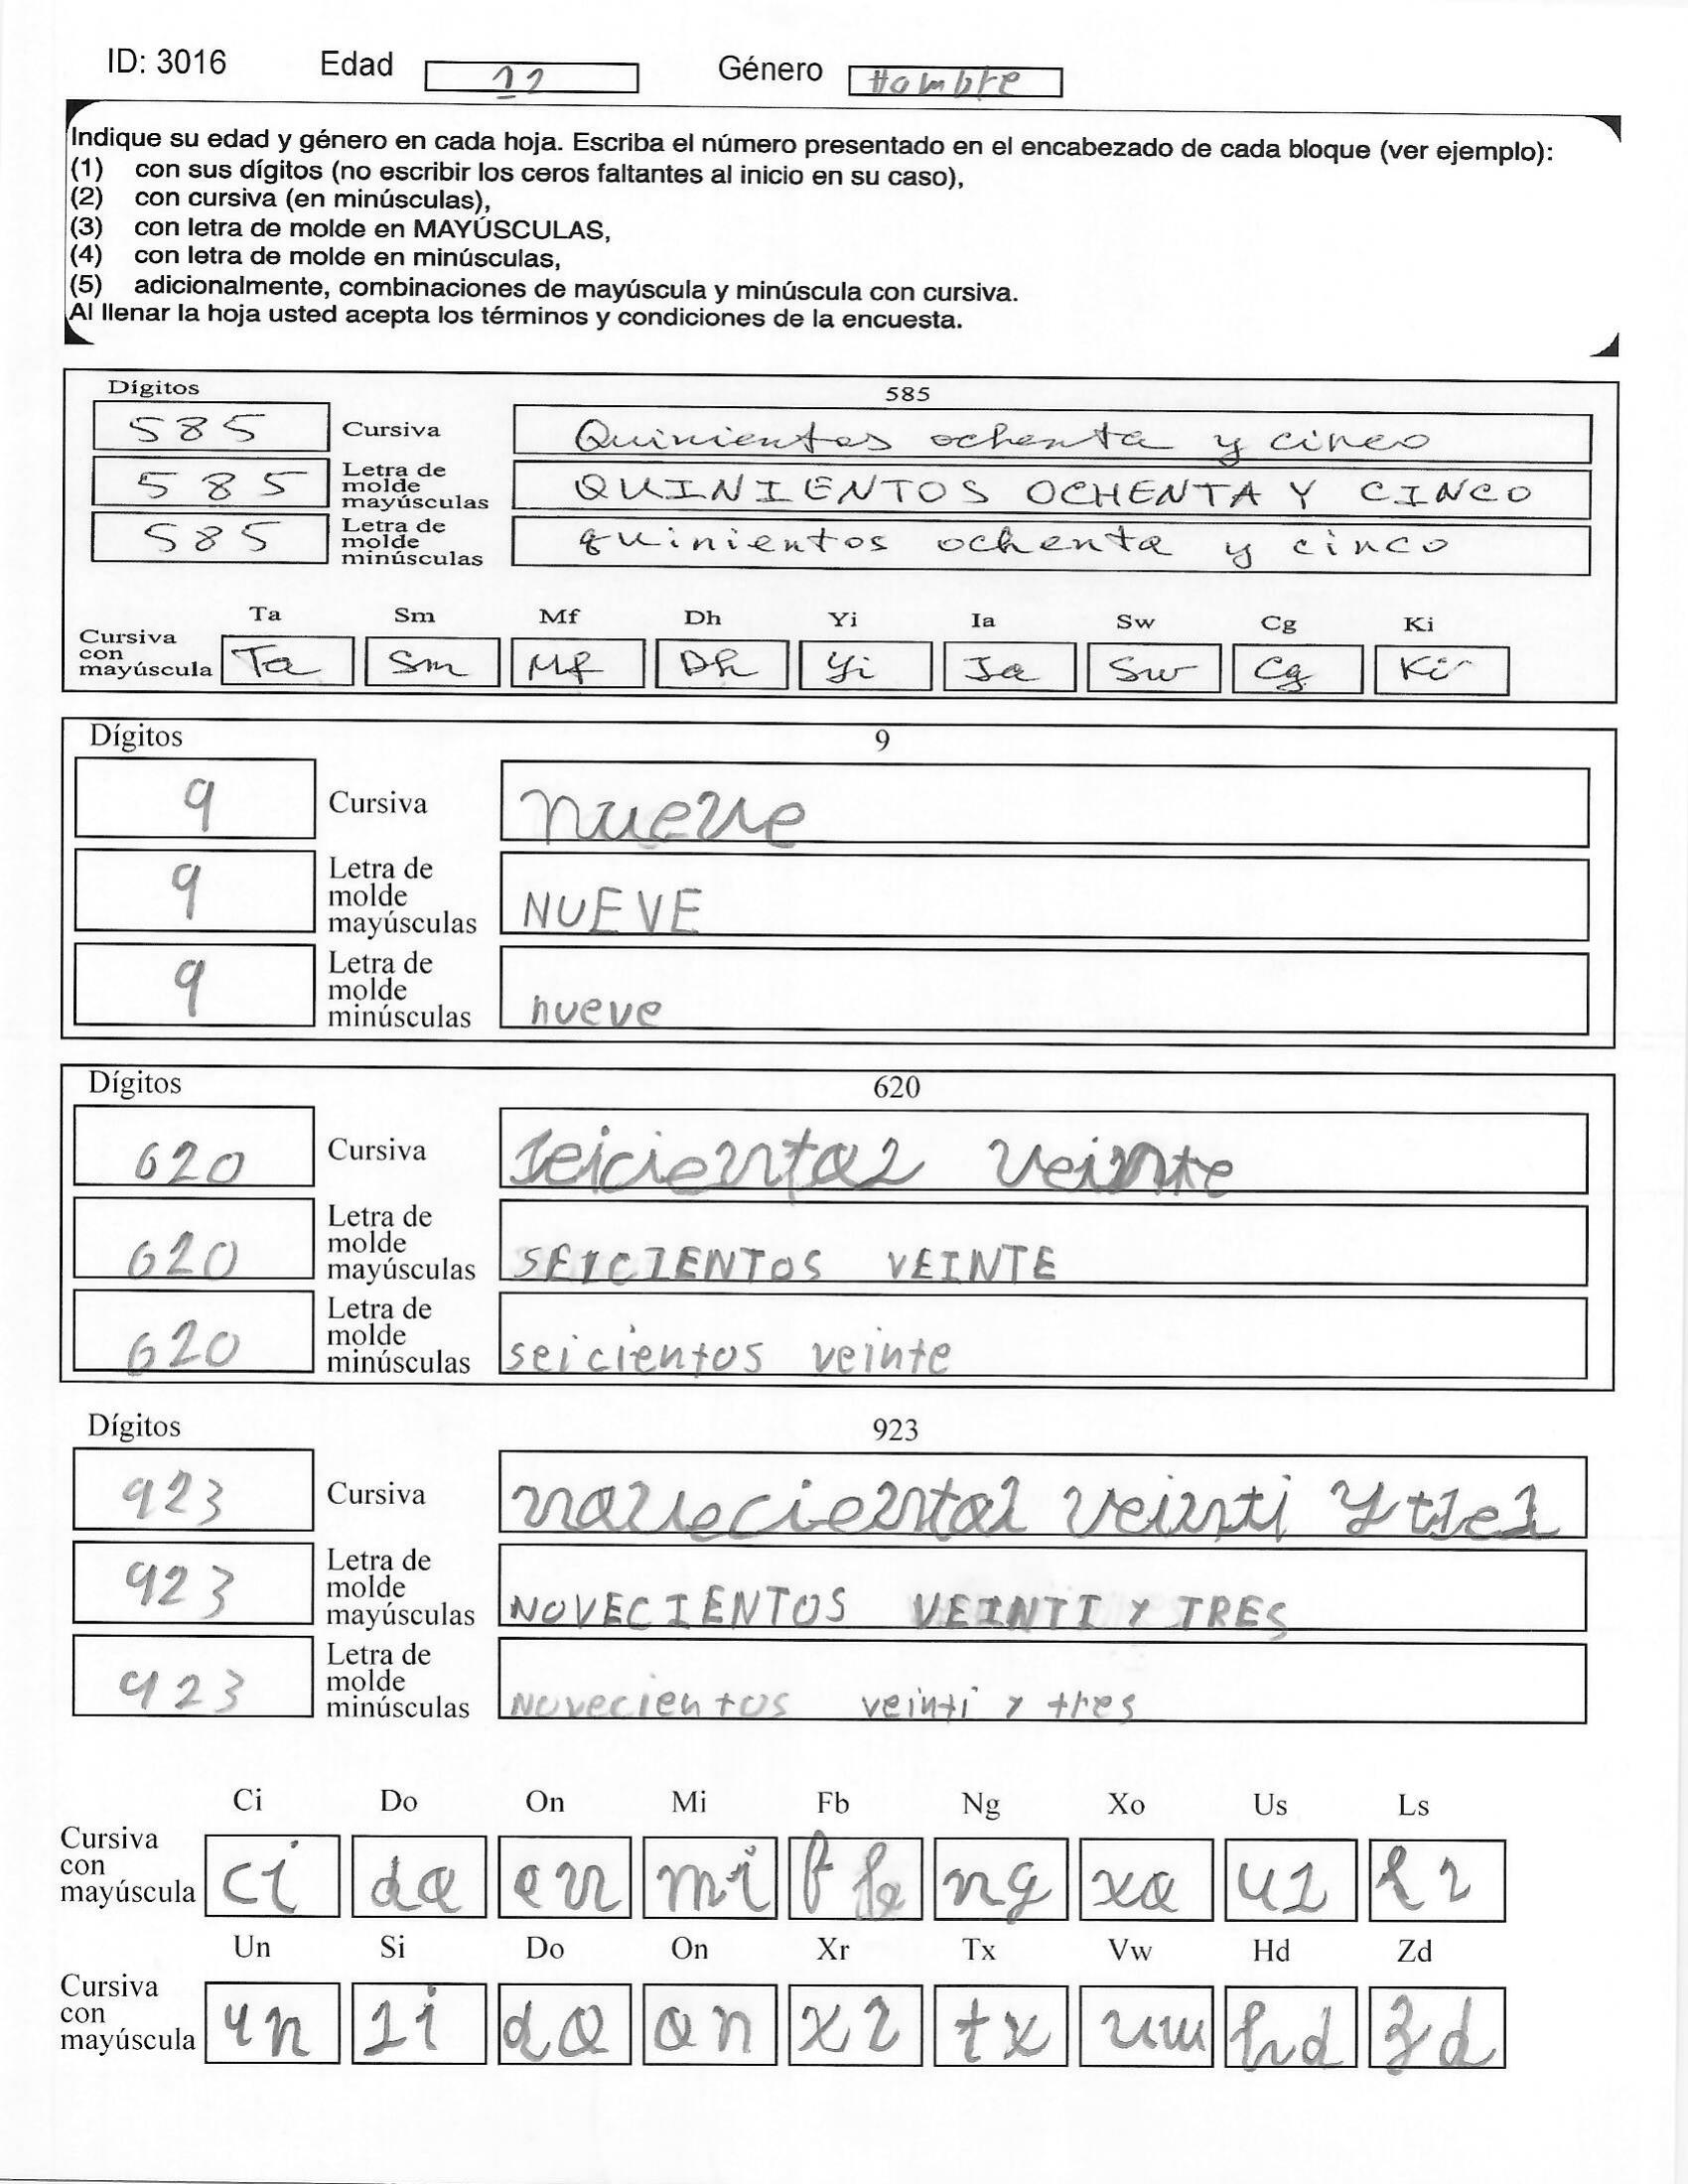 ID: 3016 Edad 12 Género Hombre
Indique su edad y género en cada hoja. Escriba el número presentado en el encabezado de cada bloque (ver ejemplo):
(1) con sus dígitos (no escribir los ceros faltantes al inicio en su caso),
(2) con cursiva (en minúsculas),
(3) con letra de molde en MAYÚSCULAS,
(4) con letra de molde en minúsculas,
(5) adicionalmente, combinaciones de mayúscula y minúscula con cursiva.
Al llenar la hoja usted acepta los términos y condiciones de la encuesta.
Dígitos 585
585 Cursiva Quinientos ochenta y cinco
585 Letra de molde mayúsculas QUINIENTOS OCHENTA Y CINCO
585 Letra de molde minúsculas quinientos ochenta y cinco
Ta Sm Mf Dh Yi Ia Sw Cg Ki
Cursiva con mayúscula Ta Sm Mf Dh Yi Ia Sw Cg Ki
Dígitos 9
9 Cursiva nueve
9 Letra de molde mayúsculas NUEVE
9 Letra de molde minúsculas nueve
Dígitos 620
620 Cursiva seicientos veinte
620 Letra de molde mayúsculas SEICIENTOS VEINTE
620 Letra de molde minúsculas seicientos veinte
Dígitos 923
923 Cursiva novecientos veinti y tres
923 Letra de molde mayúsculas NOVECIENTOS VEINTI Y TRES
923 Letra de molde minúsculas novecientos veinti y tres
Ci Do On Mi Fb Ng Xo Us Ls
Cursiva con mayúscula ci do on mi f fb ng xo us ls
Un Si Do On Xr Tx Vw Hd Zd
Cursiva con mayúscula un si do on xr tx vw hd zd